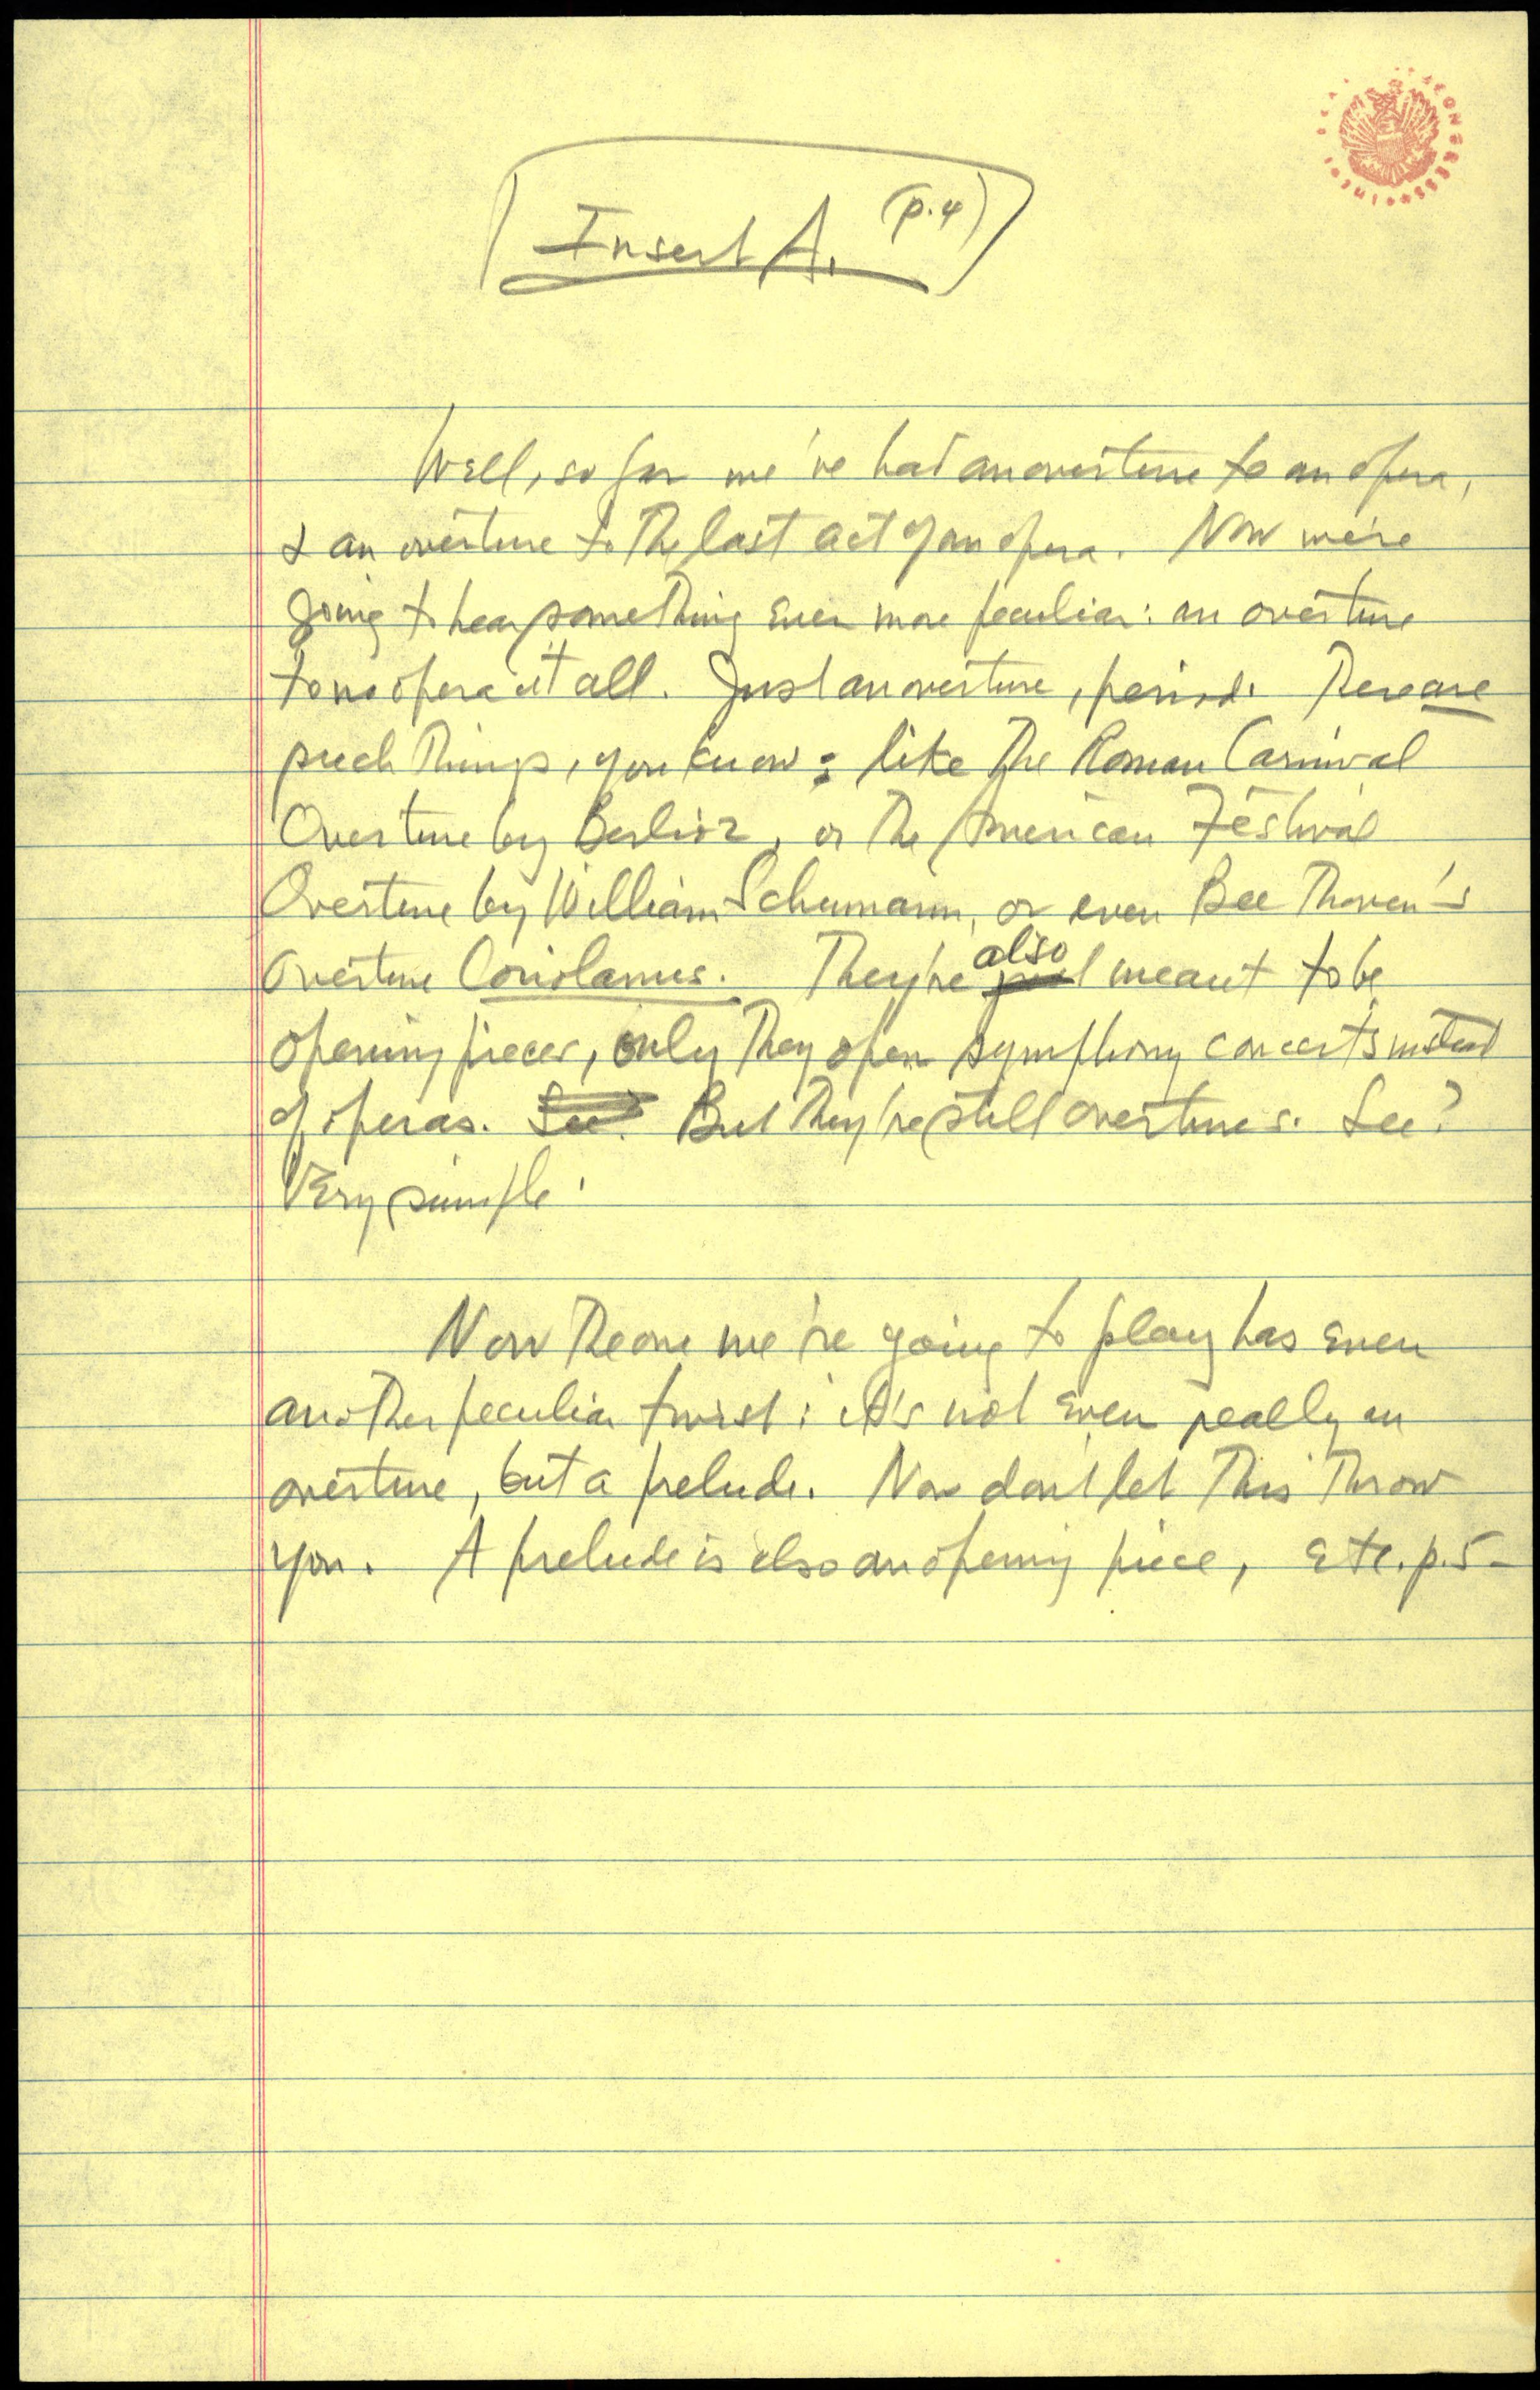 Insert A. (p.4)
Well, so far we've had an overture to an opera,
& an overture to the last act of an opera. Now we're
going to hear something even more peculiar: an overture
to no opera at all. Just an overture, period. There are
such things, you know: like the Roman Carnival
Overture by Berlioz, or the American Festival
Overture by William Schumann, or even Beethoven's
Overture Coriolanus. They're also meant to be
opening pieces, only they open symphony concerts instead
of operas. See? But they're still overtures. See?
Very simple.
Now the one we're going to play has even
another peculiar twist: it's not even really an
overture, but a prelude. Now don't let this throw
you. A prelude is also an opening piece, etc. p.5-